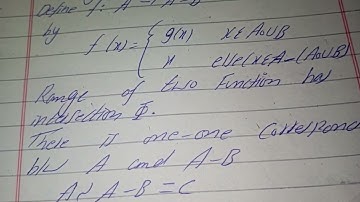 Define f: A → A-B
by
f(x) = { g(x) x ∈ A₀∪B
x else (x∈A-(A₀∪B)
Range of two function has
intersection Φ.
There is one-one Correspond
b/w A and A-B
A ~ A-B = C